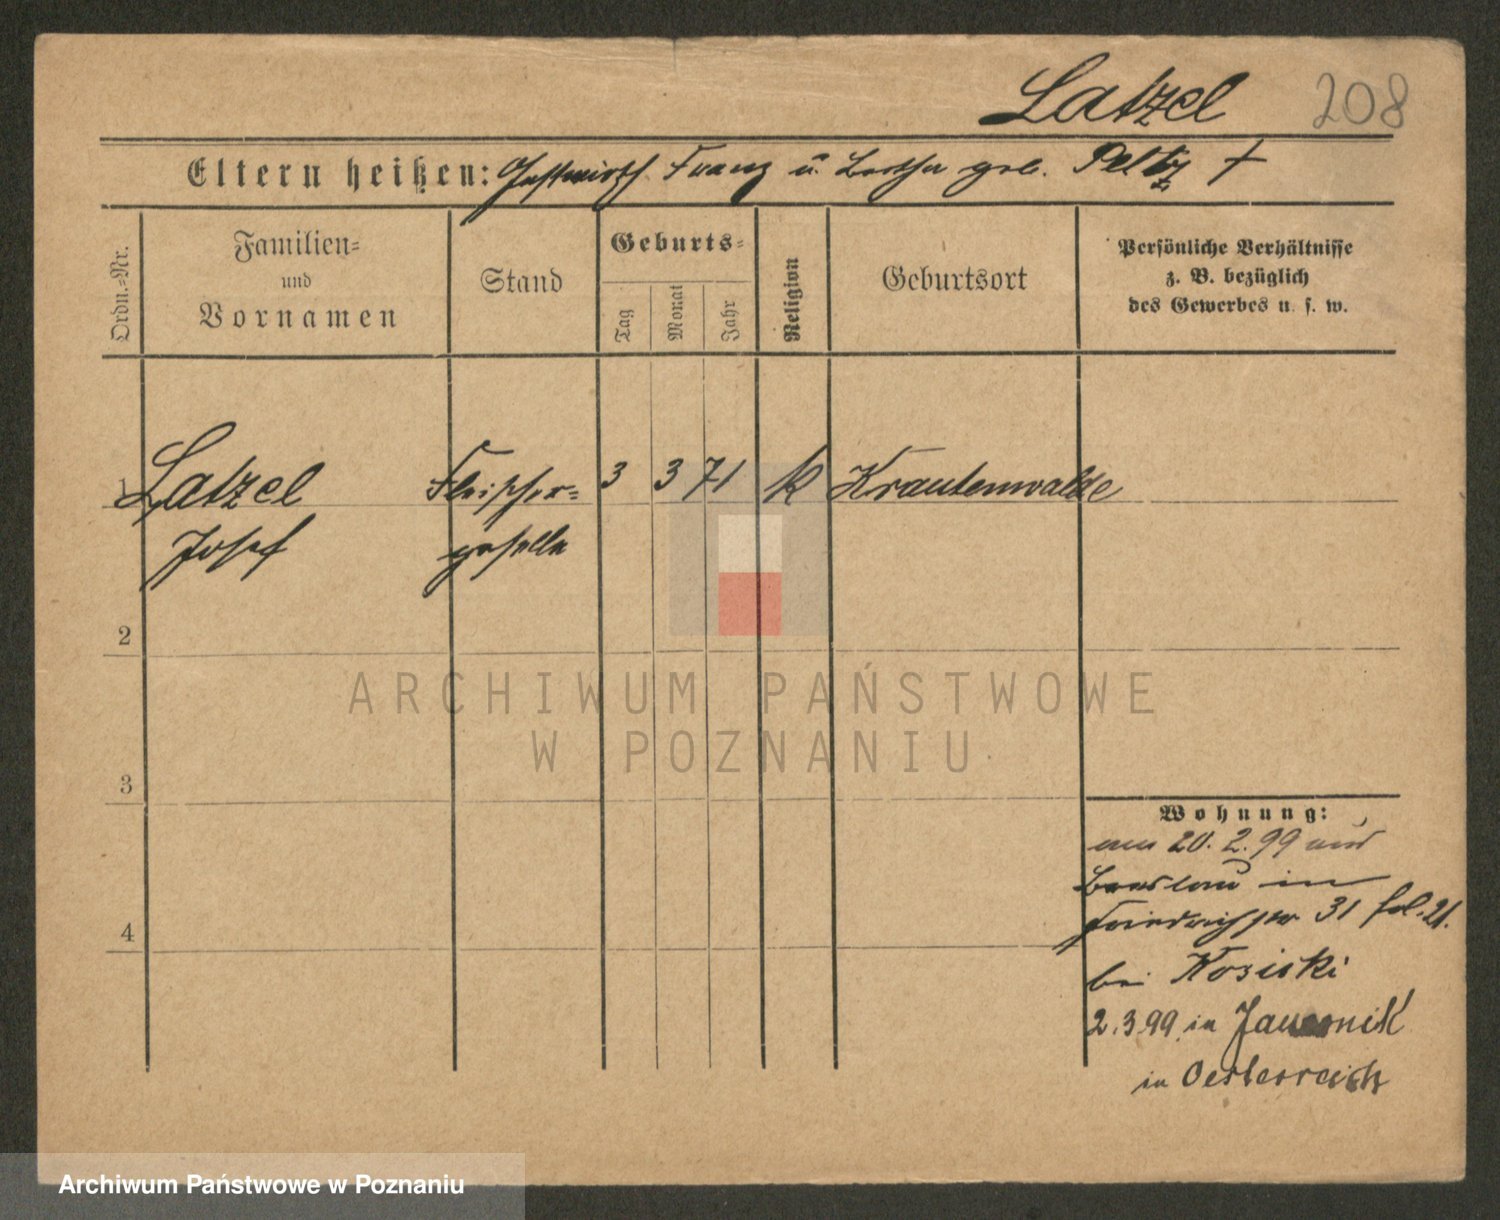 Latzel 208
Eltern heißen: Gastwirth Franz u. Bertha geb. Peltz †
Ordn.-Nr.
Familien-
und
Vornamen
Stand
Geburts-
Tag
Monat
Jahr
Religion
Geburtsort
Persönliche Verhältnisse
z. B. bezüglich
des Gewerbes u. s. w.
1 Latzel Fleischer- 3 3 71 k Krautenwalde
Josef geselle
2
ARCHIWUM PAŃSTWOWE
W POZNANIU
3
Wohnung:
am 20.2.99 aus
Breslau in
Friedrichstr 31 fol. 21.
4
bei Kosicki
2.3.99 in Jauernik
in Oesterreich
Archiwum Państwowe w Poznaniu